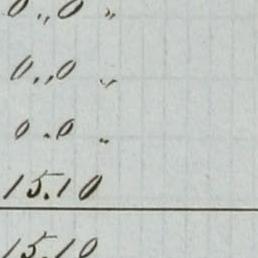 0 „ 0 „
0 „ 0 „
0 . 0 „
15.10
15.10